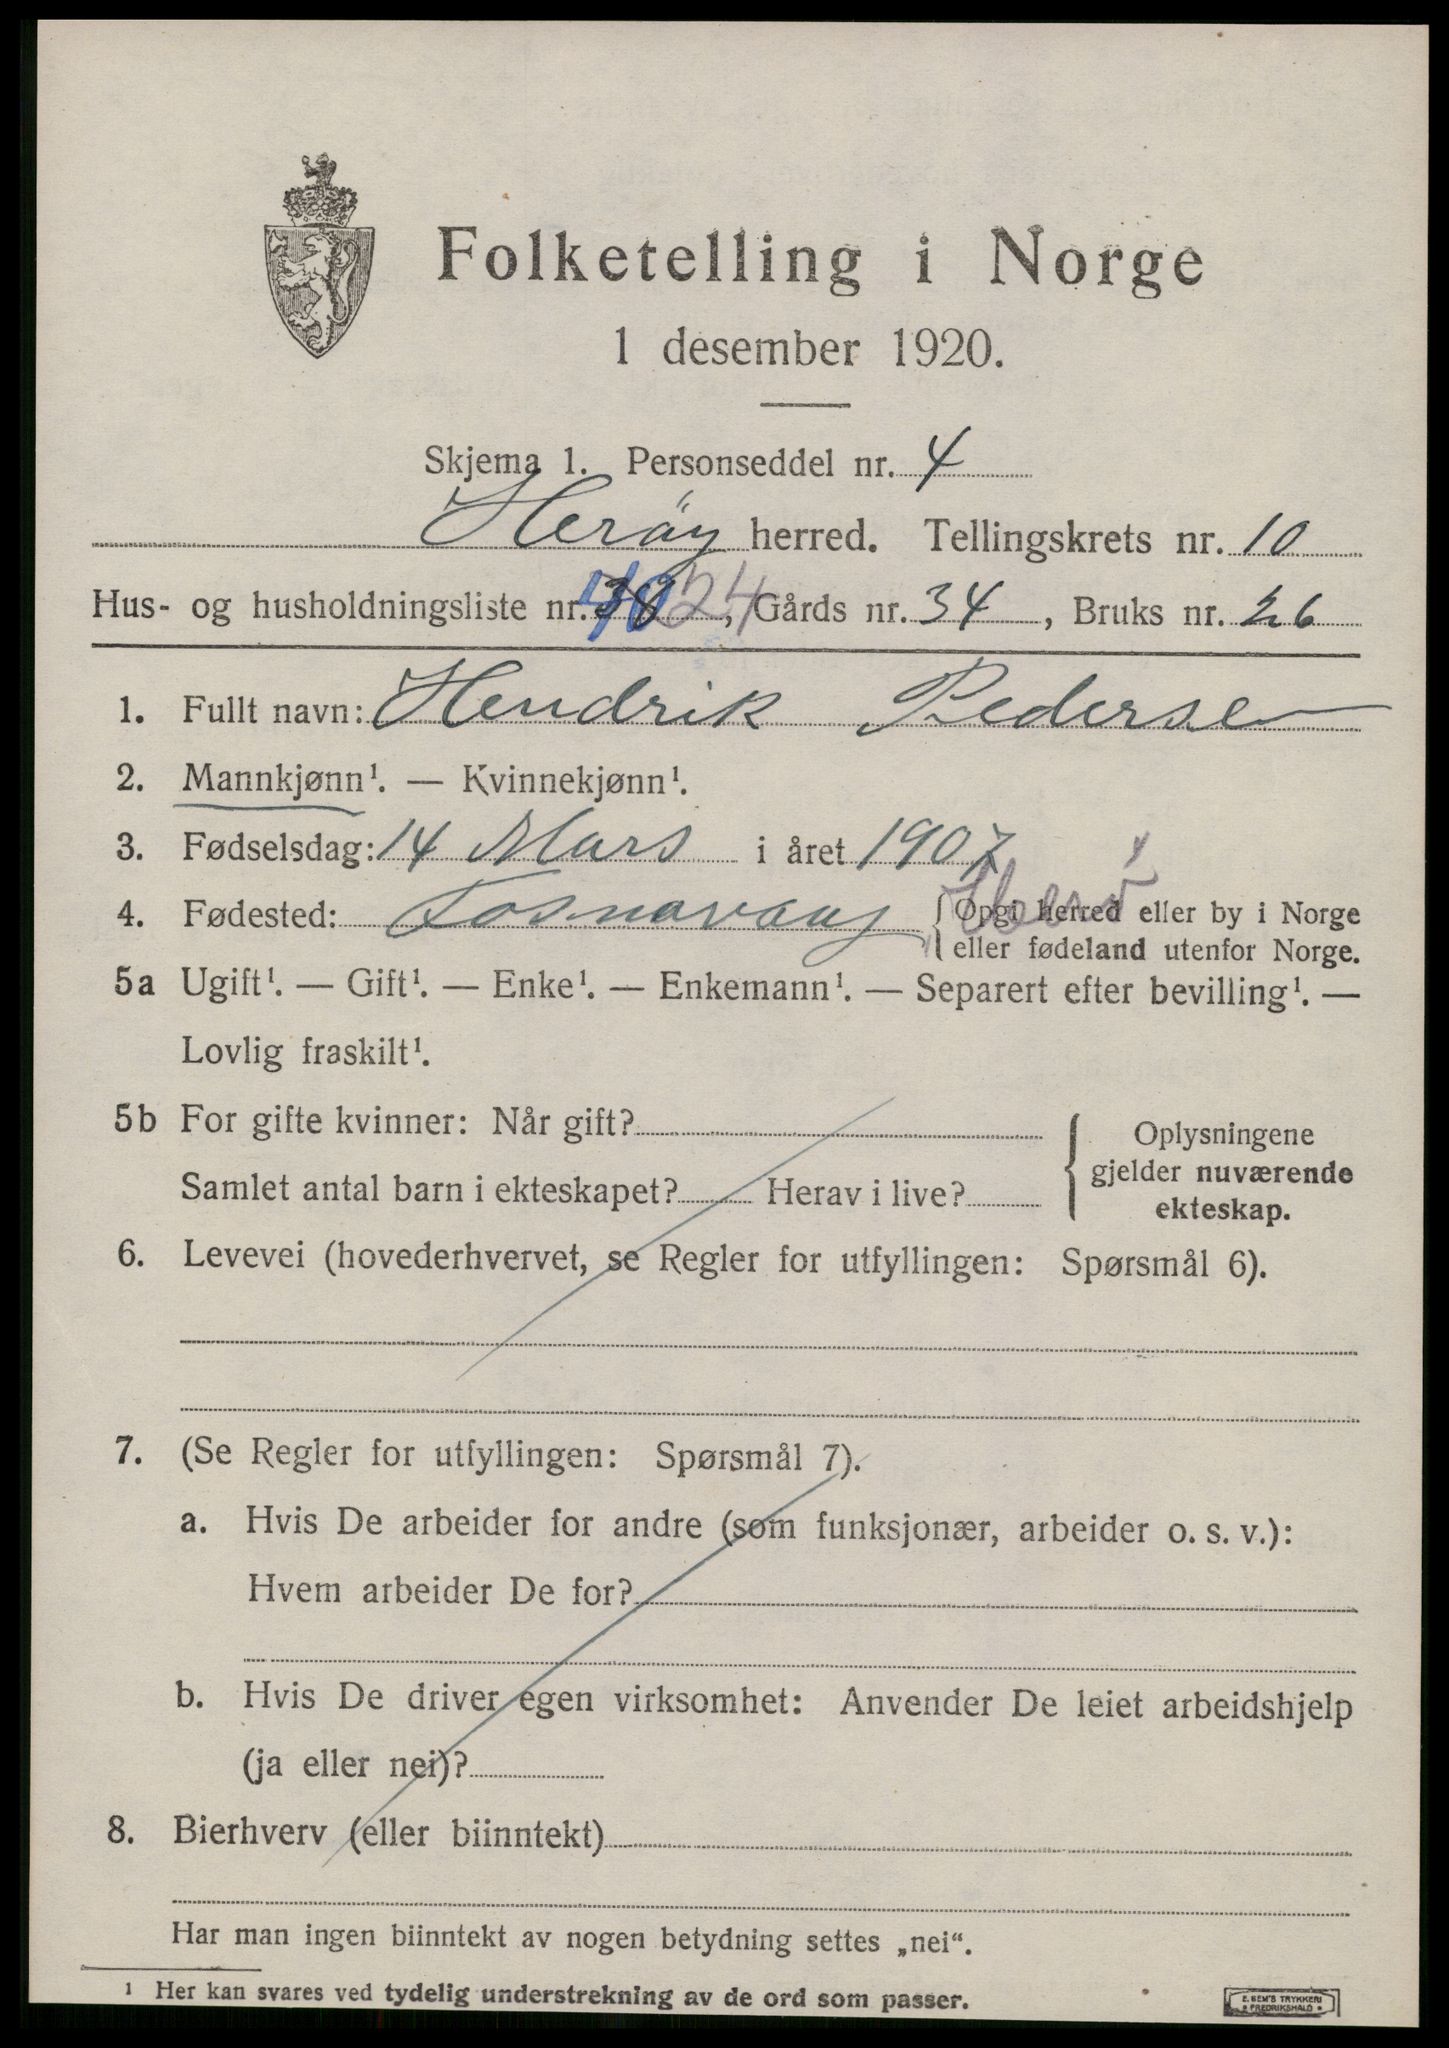 Folketelling i Norge
1 desember 1920.
Skjema 1. Personseddel nr. 4
Herøy herred. Tellingskrets nr. 10
Hus- og husholdningsliste nr. 40 24, Gårds nr. 34, Bruks nr. 26
1. Fullt navn: Hendrik Pedersen
2. Mannkjønn¹. — Kvinnekjønn¹.
3. Fødselsdag: 14 Mars i året 1907
4. Fødested: Fosnavaag { Opgi herred eller by i Norge
eller fødeland utenfor Norge.
5a Ugift¹. — Gift¹. — Enke¹. — Enkemann¹. — Separert efter bevilling¹. —
Lovlig fraskilt¹.
5b For gifte kvinner: Når gift?
Samlet antal barn i ekteskapet? Herav i live?
{ Oplysningene
gjelder nuværende
ekteskap.
6. Levevei (hovederhvervet, se Regler for utfyllingen: Spørsmål 6).
7. (Se Regler for utfyllingen: Spørsmål 7).
a. Hvis De arbeider for andre (som funksjonær, arbeider o. s. v.):
Hvem arbeider De for?
b. Hvis De driver egen virksomhet: Anvender De leiet arbeidshjelp
(ja eller nei)?
8. Bierhverv (eller biinntekt)
Har man ingen biinntekt av nogen betydning settes „nei“.
¹ Her kan svares ved tydelig understrekning av de ord som passer.
E. SEM'S TRYKKERI
FREDRIKSHALD